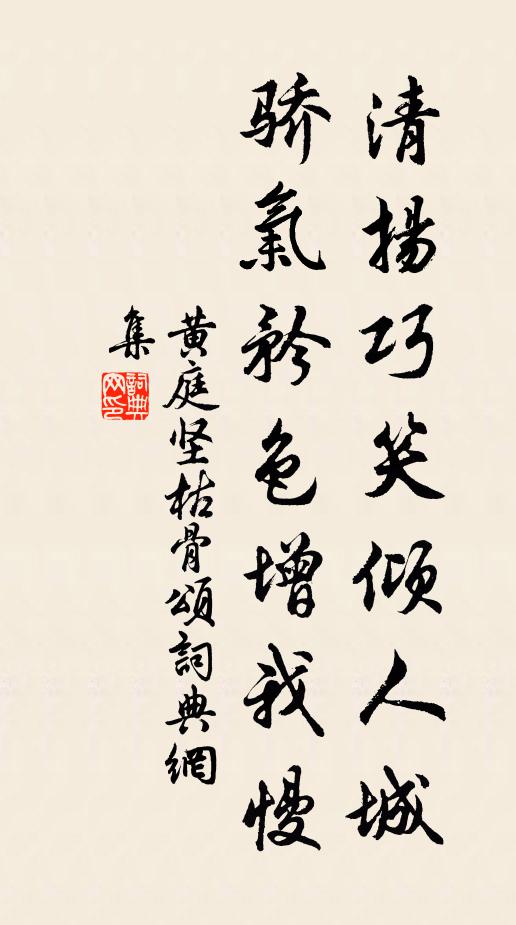 清揚巧笑倾人城
骄氣矜色增我慢
黄庭坚枯骨頌詞典網
集
詞典
网印